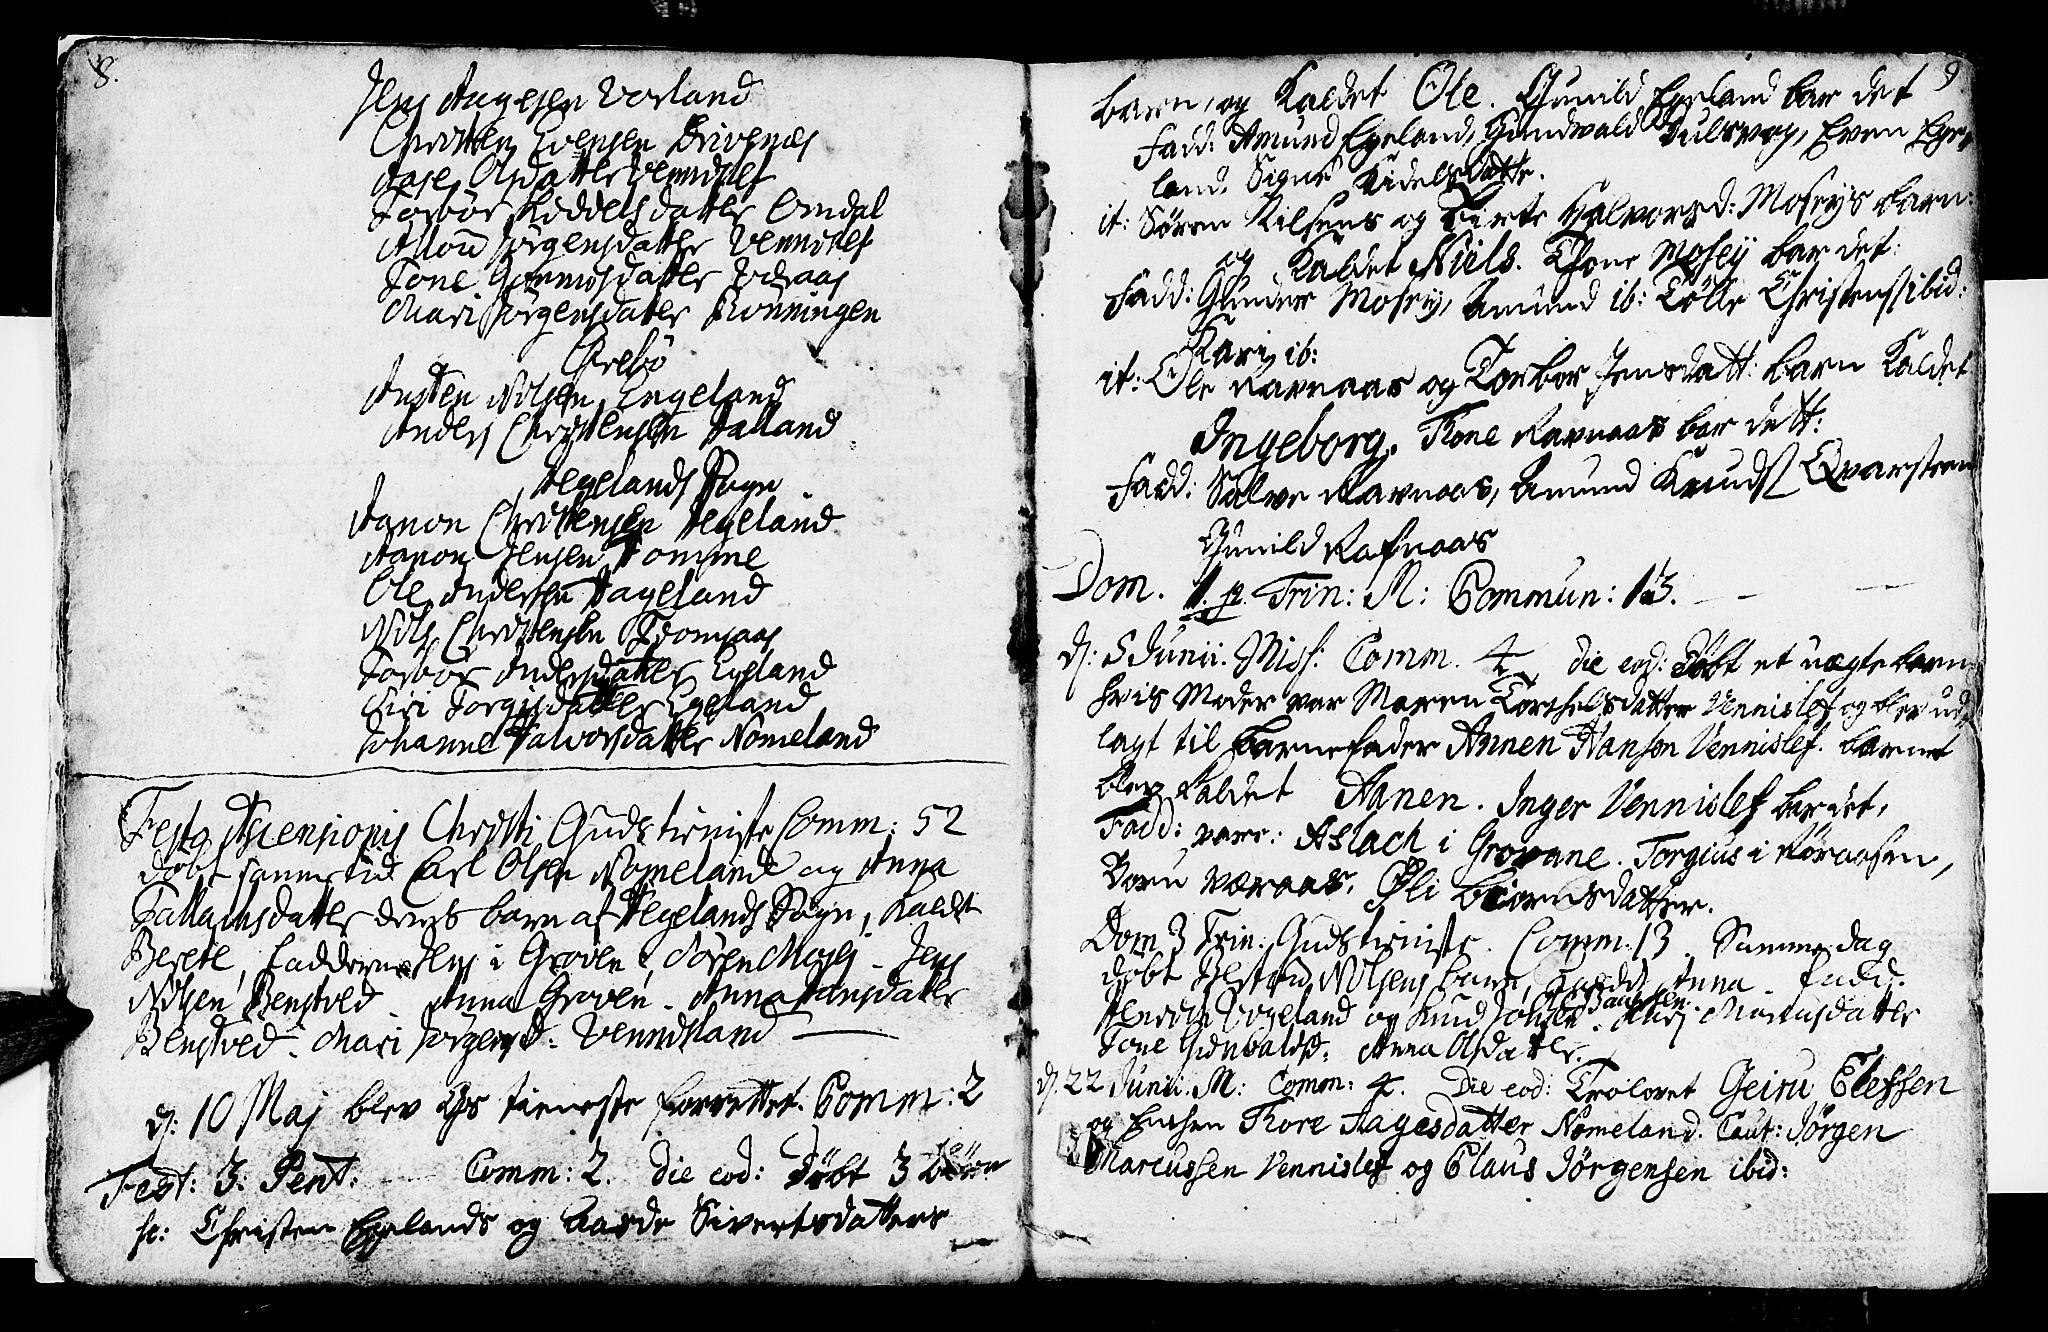 8.
Jens Aagesen Vorland
Christen Evensen Drivenæs
Aase Olsdatter Vennislef
Torbor Kiddelsdatter Omdal
Jørgensdatter Vennislef
Tone Gunnisdatter Væraas
Mari Jørgensdatter Rönningen
Øvrebö
Austen Nilsen Engeland
Anders Christensen Halland
Hegelands Sogn
Aanon Christensen Hegeland
Aanon Jensen Homme
Ole Andersen Hageland
Nils Christensen Fromsaas
Torbor Andersdatter Egeland
Siri Torgisdatter Egeland
Johanne Halvorsdatter Nomeland
Festo Ascensionis Christi Gudstieniste Comm: 52
döbt samme tid Carl Olsen Nomeland og Anna
Tallaksdatter deres barn af Hegelands Sogn, kaldet
Berete, Faddere Jens i Groven, Sören Mosej - Jens
Nilsen Benstved - Anna Groven - Anna Hansdatter
Benstved - Mari Jörgensd: Vennisland
d: 10 Maj blev Gs tieneste forrettet. Comm: 2
Fest: 3: Pent: Comm: 2. die eod: Döbt 3 börn
sc: Christen Egelands og Aasde Sivertsdatters
9
barn, og kaldet Ole. Gunild Egeland bar det
Fadd: Amund Egeland, Gundwald Julsvog, Even Ege-
land. Signe Kidelsdatte.
it: Sören Nilsens og Berte Halvorsd: Moseys barn
og kaldet Niels. Thone Mosey bar det:
Fadd: Gunder Mosey, Amund ib: Tölle Christens: ibid:
Kari ib:
it: Ole Ravnaas og Torbor Jensdatt: barn kaldet
Ingeborg. Thone Ravnaas bar dett:
Fadd: Salve Ravnaas, Amund Knuds: Qvarsteen
Gunild Rafnaas
Dom. 1. p. Trin: M: Commun: 13.
d: 5 Junii. Miss: Comm. 4 die eod: Döbt et uægte barn
hvis Moder var Maren Torchelsdatter Vennislef og blev ud-
lagt til barnefader Annen Hansen Vennislef. barnet
blev kaldet Aanen. Inger Vennislef bar det,
Fadd: vare: Aslach i Grovane. Torgius i Röraasen,
Væraas. Öli Biörnsdatter.
Dom 3 Trin: Gudstieniste. Comm: 13. Samme dag
döbt Nilsens barn, kaldet Anna. Fadd:
Vogeland og Knud Marcusdatter
Tone Gunvaldsd: Anna Olsdatter.
d. 22 Junii. M: Comm: 4. Die eod: Trolovet Geiru Elefsen
og Enchen Thore Aagesdatter Nomeland. Caut: Jörgen
Marcussen Vennislef og Claus Jörgensen ibid: